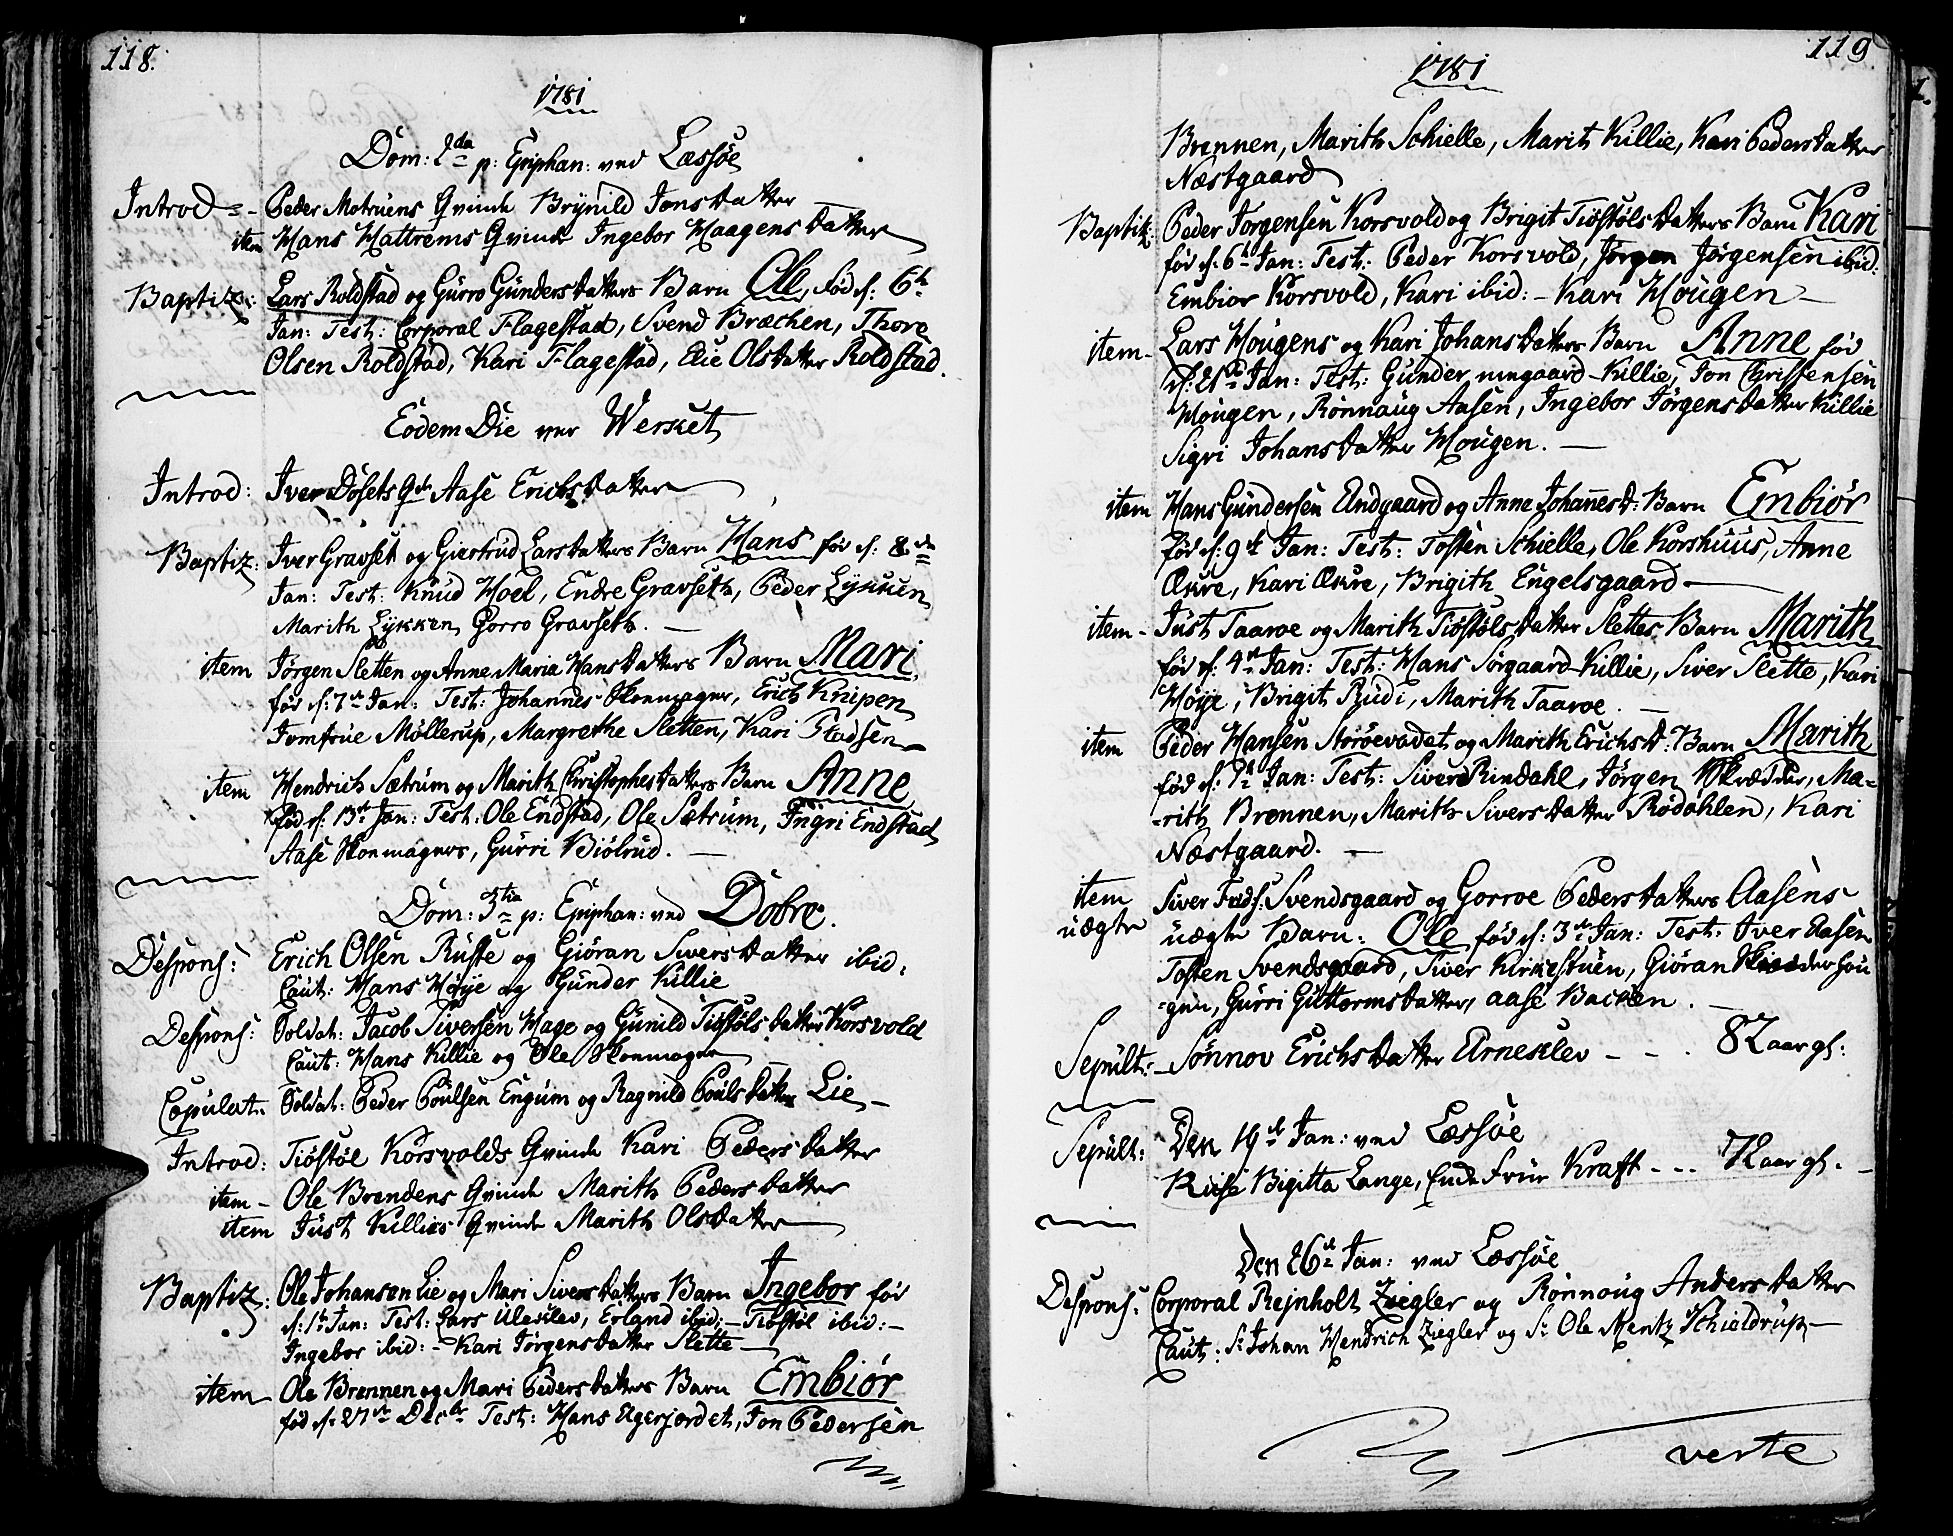 118.
1781
Dom: 2da p: Epiphan: ved Læssøe
Introd= - Peder Motruens Qvinde Brynild Jonsdatter
item Hans Hattrems Qvinde Ingebor Haagensdatter
Baptiz: Lars Roldstad og Gurro Gundersdatters Barn Ole, fød d: 6te
Jan: Test: Corporal Flagestad, Svend Bræchen, Thore
Olsen Roldstad, Kari Flagestad, Elie Olsdatter Roldstad.
Eodem Die ved Werket
Introd: Iver Dosets Qde Aase Erichsdatter
Baptiz: Iver Gravset og Giertrud Larsdatters Barn Hans fød d: 8de
Jan: Test: Knud Hoel, Endre Gravseth, Peder Lykken
Marith Lykken, Gorro Gravseth.
item Jørgen Sletten og Anne Maria Hansdatters Barn Mari
fød d: 7de Jan: Test: Johannes Skomager, Erich Knipen
Jomfrue Møllerup, Margrethe Sletten, Kari Stadsen
item Hendrich Sætrum og Marith Christophersdatters Barn Anne
fød d: 13de Jan: Test: Ole Endstad, Ole Sætrum, Ingri Endstad
Aase Skomagers, Gurri Biølrud.
Dom: 3tia p: Epiphan: ved Dobre.
Despons: Erich Olsen Ruste og Giøran Siversdatter ibid:
Caut: Hans Høye og Gunder Killie
Despons: Soldat: Jacob Siversen Hage og Gunild Tiøstølsdatter Korsvold
Caut: Hans Killie og Ole Skomager
Copulat: Soldat: Peder Poulsen Engum og Ragnild Poulsdatter Lie -
Introd: Tiøstøl Korsvolds Qvinde Kari Pedersdatter
item - Ole Brendens Qvinde Marith Pedersdatter
item Just Killies Qvinde Marith Olsdatter
Baptiz: Ole Johansen Lie og Mari Siversdatters Barn Ingebor fød
d: 1te Jan: Test: Lars Uleklev, Erland ibid: - Tiøstøl ibid: -
Ingebor ibid: - Kari Jørgensdatter Slette -
item Ole Brennen og Mari Pedersdatters Barn Embiør
fød d: 27de Decbr Test: Hans Agerjordet, Jon Pedersen
119
1781
Brennen, Marith Schielle, Marit Killie, Kari Pedersdatter
Næstgaard
Baptiz: Peder Jørgensen Korsvold og Brigit Tiøstølsdatters Barn Kari
fød d: 6te Jan: Test: Peder Korsvold, Jørgen Jørgensen ibid:
Embiør Korsvold, Kari ibid: - Kari Hougen -
item - Lars Hougens og Kari Johansdatters Barn Anne fød
d: 21de Jan: Test: Gunder nyegaard Killie, Jon Christensen
Hougen, Rønnaug Aasen, Ingebor Jørgensdatter Killie
Sigri Johansdatter Hougen. -
item Hans Gundersen Andgaard og Anne Johannesd: Barn Embiør
fød d: 9de Jan: Test: Tosten Schielle, Ole Korshuus, Anne
Økre, Kari Økre, Brigith Engelsgaard -
item - Just Taaroe og Marith Tiøstølsdatter Slettes Barn Marith
fød d: 4de Jan: Test: Hans Sørgaard Killie, Siver Slette, Kari
Høye, Brigit Rudi, Marith Taaroe.
item Peder Hansen Norøevadet og Marith Erichsd: Barn Marith
fød d: 7de Jan: Test: Siver Rindahl, Jørgen Skrædder, Ma=
=rith Brennen, Marith Siversdatter Rødahlen, Kari
Næstgaard. -
item Siver Frids: Svendsgaard og Gorroe Pedersdatters Aasens
uægte uægte Barn: Ole fød d: 3de Jan: Test: Iver Aasen
Tosten Svendsgaard, Siver Kirkestuen, Giøran
=gen, Gurri Guttormsdatter, Aase Backen. -
Sepult: - Sønnov Erichsdatter Arneklev - - - 82 aar gl:
Den 19de Jan: ved Læssøe
Sepult: Birgitta Lange, Frue Kraft - - - 72 aar gl. -
Den 26de Jan: ved Læssøe
Despons: Corporal Rejnholt Ziegler og Rønnoug Andersdatter
Caut: Sr Johan Hendrich Ziegler og Sr Ole Mentz Schieldrup -
verte